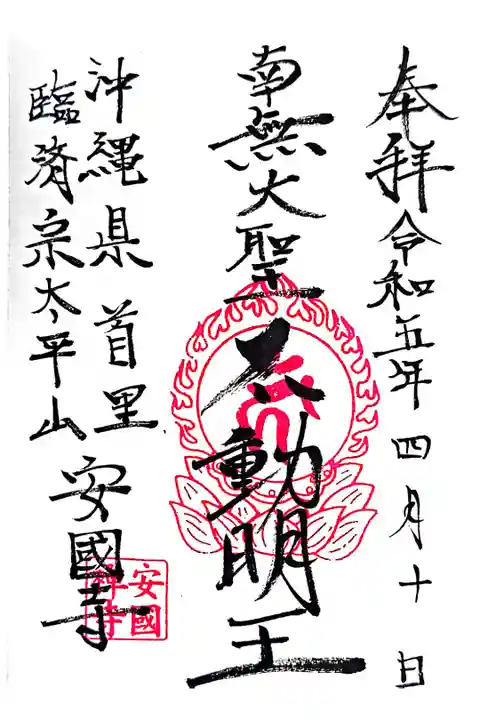 奉拝 令和五年 四月十日
南無大聖不動明王
沖縄県 首里
臨済宗太平山 安國寺
安國禅寺